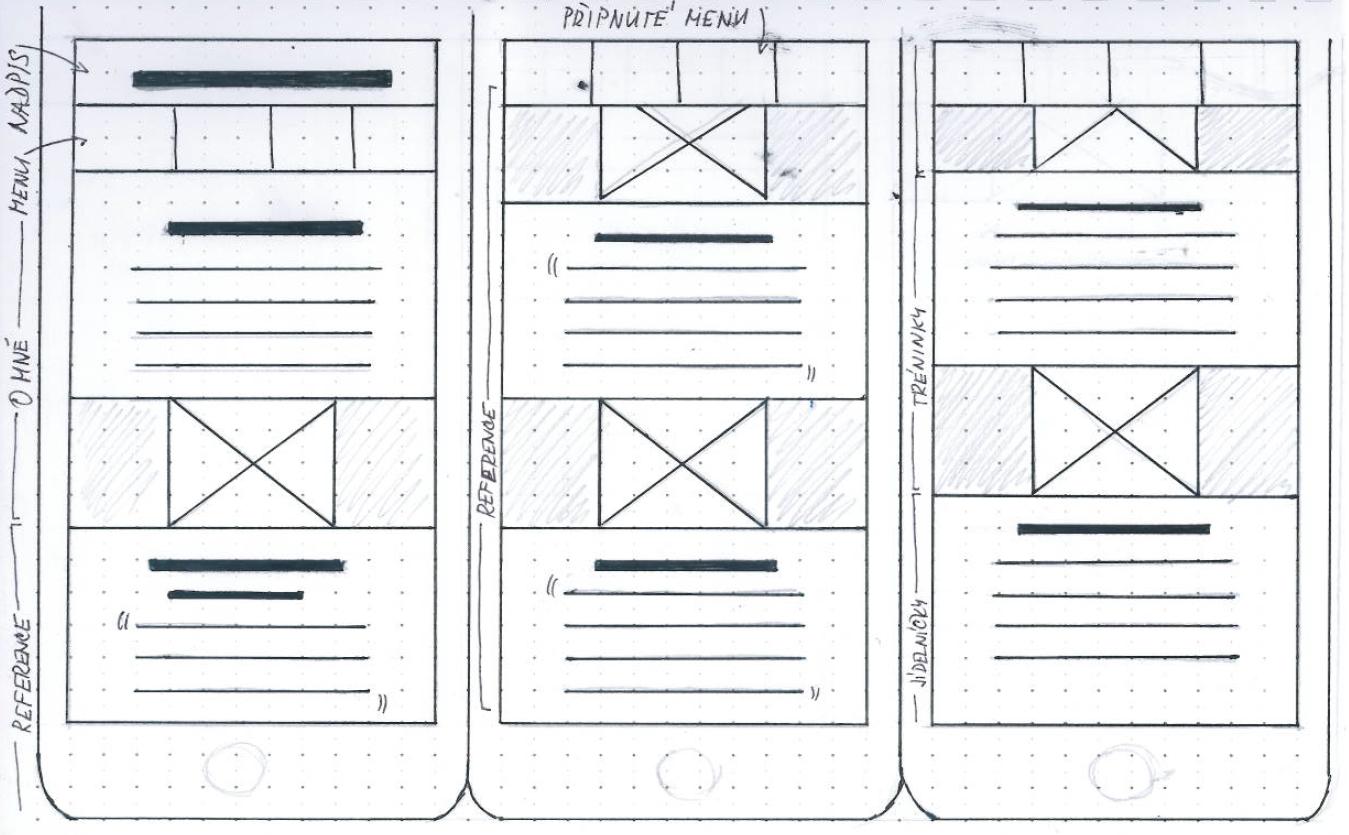 NADPIS
MENU
O MNĚ
REFERENCE
PŘIPNUTÉ MENU
REFERENCE
TRÉNINKY
JÍDELNÍČKY